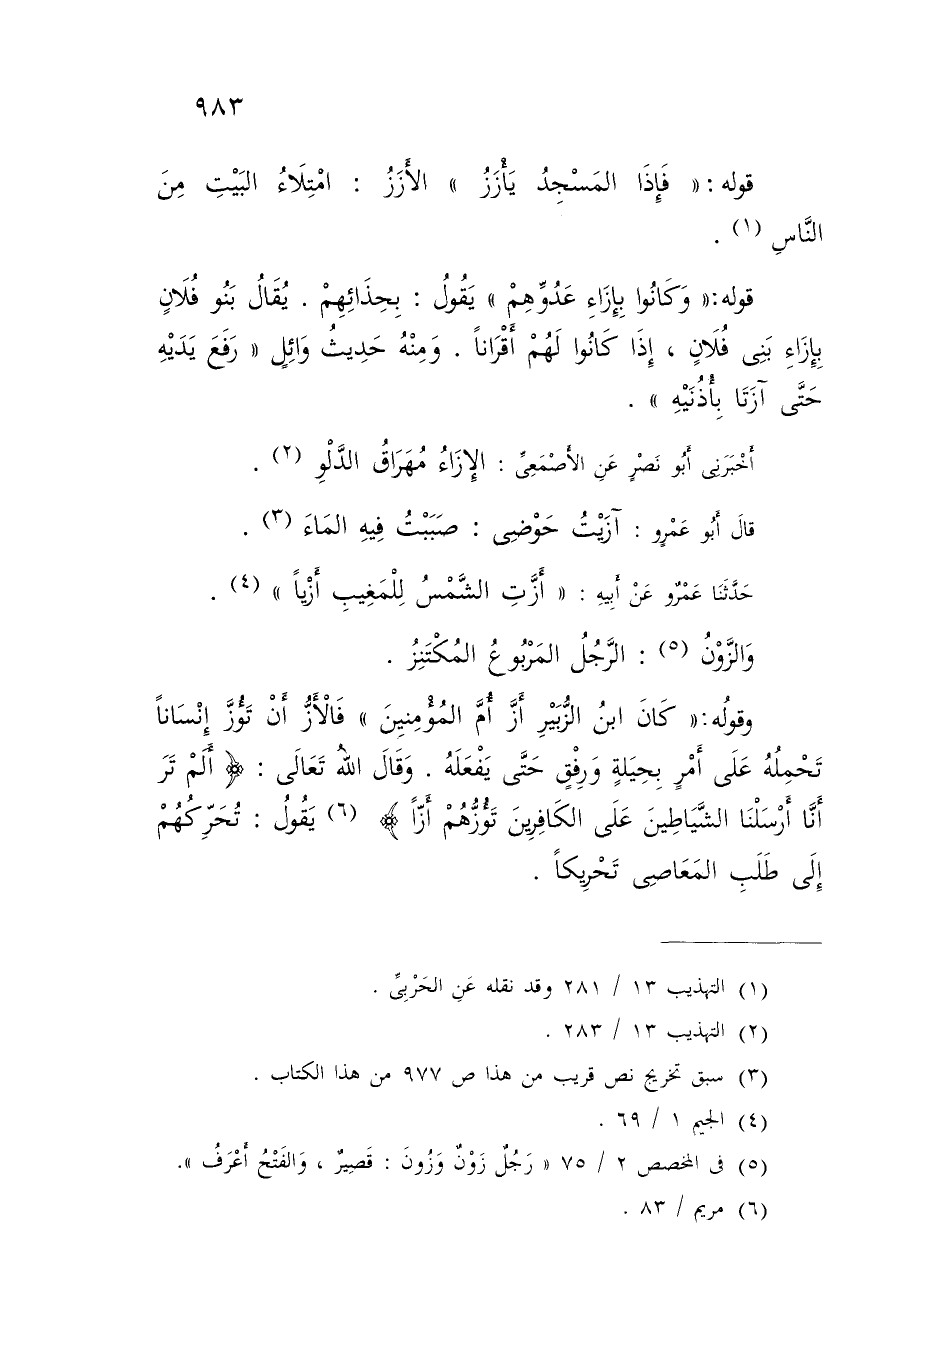 ٩٨٣
قوله : « فَإِذَا المَسْجِدُ يَأْزَزُ » الأَزَزُ : امْتِلَاءُ البَيْتِ مِنَ
النَّاسِ (١) .
قوله:« وَكَانُوا بِإِزَاءِ عَدُوِّهِمْ » يَقُولُ : بِحِذَائِهِمْ . يُقَالُ بَنُو فُلَانٍ
بِإِزَاءِ بَنِى فُلَانٍ ، إِذَا كَانُوا لَهُمْ أَقْرَاناً . وَمِنْهُ حَدِيثُ وَائِلٍ « رَفَعَ يَدَيْهِ
حَتَّى آزَتَا بِأُذُنَيْهِ » .
أَخْبَرَنِى أَبُو نَصْرٍ عَنِ الأَصْمَعِىِّ : الإِزَاءُ مُهَرَاقُ الدَّلْوِ (٢) .
قالَ أَبُو عَمْرٍو : آزَيْتُ حَوْضِى : صَبَبْتُ فِيهِ المَاءَ (٣) .
حَدَّثَنَا عَمْرٌو عَنْ أَبِيهِ : « أَزَّتِ الشَّمْسُ لِلْمَغِيبِ أَزْياً » (٤) .
وَالزَّوْنُ (٥) : الرَّجُلُ المَرْبُوعُ المُكْتَنِزُ .
وقولُه:« كَانَ ابنُ الزُّبَيْرِ أَزَّ أُمَّ المُؤْمِنِينَ » فَالْأَزُّ أَنْ تَؤُزَّ إِنْسَاناً
تَحْمِلُهُ عَلَى أَمْرٍ بِحِيلَةٍ وَرِفْقٍ حَتَّى يَفْعَلَهُ . وَقَالَ اللهُ تَعَالَى : ﴿ أَلَمْ تَرَ
أَنَّا أَرْسَلْنَا الشَّيَاطِينَ عَلَى الكَافِرِينَ تَؤُزُّهُمْ أَزّاً ﴾ (٦) يَقُولُ : تُحَرِّكُهُمْ
إِلَى طَلَبِ المَعَاصِى تَحْرِيكاً .
(١) التهذيب ١٣ / ٢٨١ وقد نقله عَنِ الحَرْبِىِّ .
(٢) التهذيب ١٣ / ٢٨٣ .
(٣) سبق تخريج نص قريب من هذا ص ٩٧٧ من هذا الكتاب .
(٤) الجيم ١ / ٦٩ .
(٥) فى المخصص ٢ / ٧٥ « رَجُلٌ زَوْنٌ وَزُونَ : قَصِيرٌ ، وَالفَتْحُ أَعْرَفُ ».
(٦) مريم / ٨٣ .